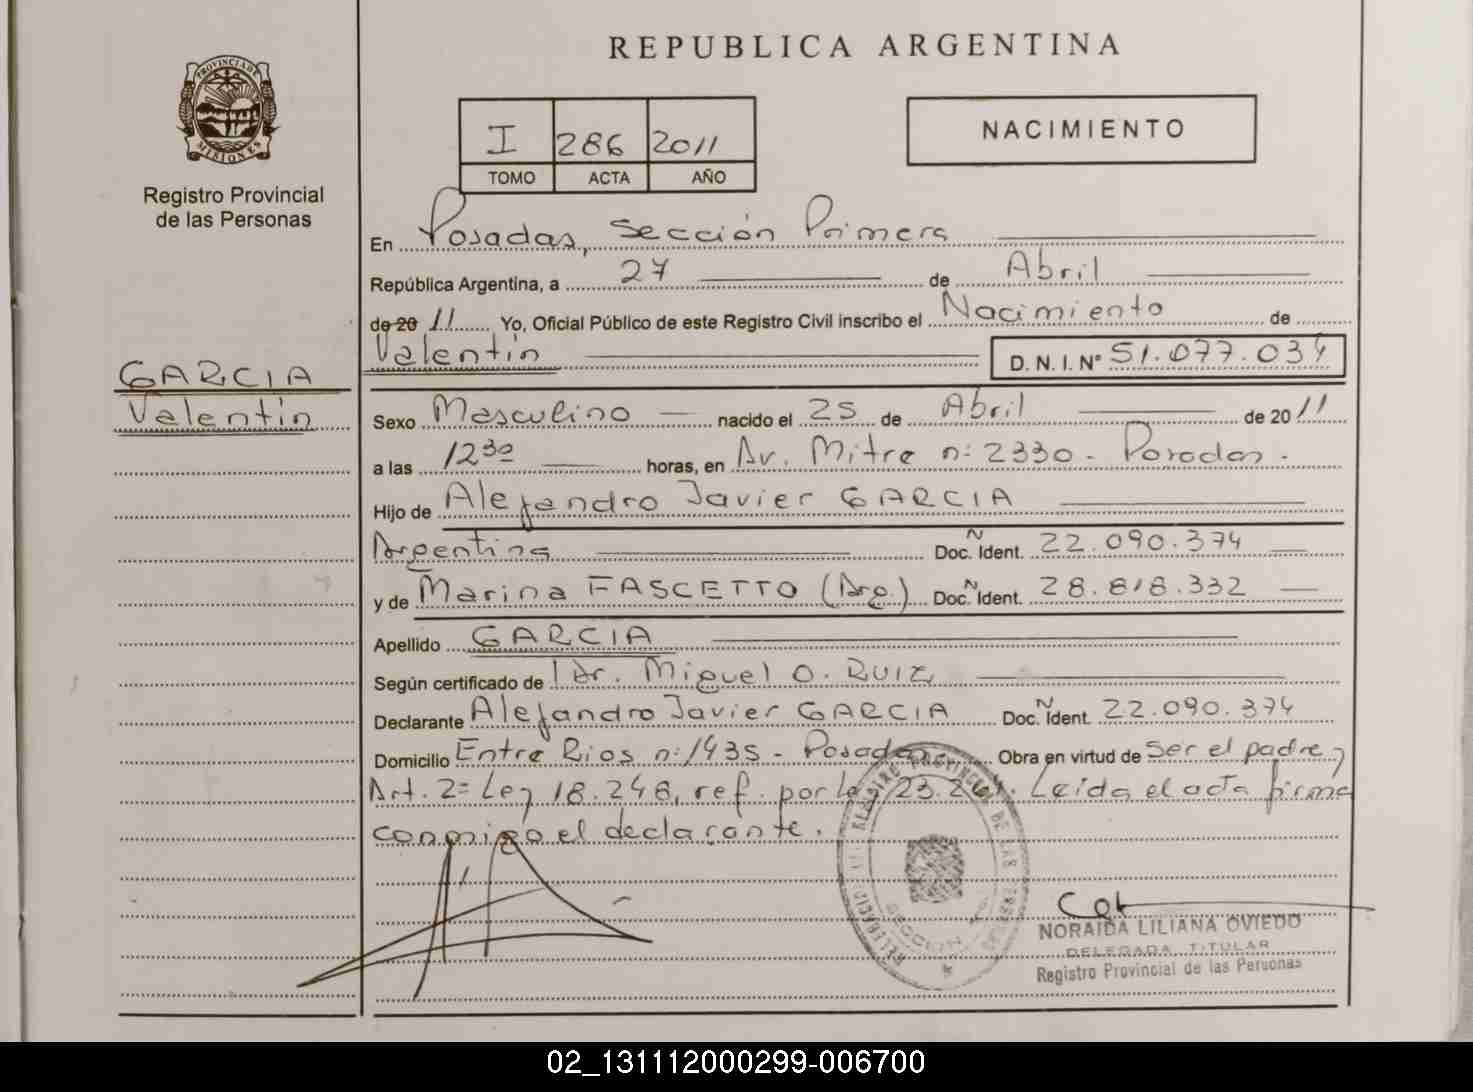 REPUBLICA ARGENTINA
PROVINCIA DE
MISIONES
Registro Provincial
de las Personas
I 286 2011
TOMO ACTA AÑO
NACIMIENTO
En Posadas, Sección Primera
República Argentina, a 27 de Abril
de 20 11 Yo, Oficial Público de este Registro Civil inscribo el Nacimiento de
Valentín D. N. I. Nº 51.077.034
GARCIA
Valentín
Sexo Masculino nacido el 25 de Abril de 2011
a las 12³⁰ horas, en Av. Mitre n: 2330 - Posadas -
Hijo de Alejandro Javier GARCIA
Argentina Doc. Ident. N 22.090.374
y de Marina FASCETTO (Arg.) Doc. Ident. N 28.818.332
Apellido GARCIA
Según certificado de Dr. Miguel O. RUIZ
Declarante Alejandro Javier GARCIA Doc. Ident. N 22.090.374
Domicilio Entre Rios n: 1435 - Posadas Obra en virtud de ser el padre y
Art. 2= Ley 18.248, ref. por la 23.264. Leída el acta firma
conmigo el declarante.
NORAIDA LILIANA OVIEDO
DELEGADA TITULAR
Registro Provincial de las Personas
02_131112000299-006700